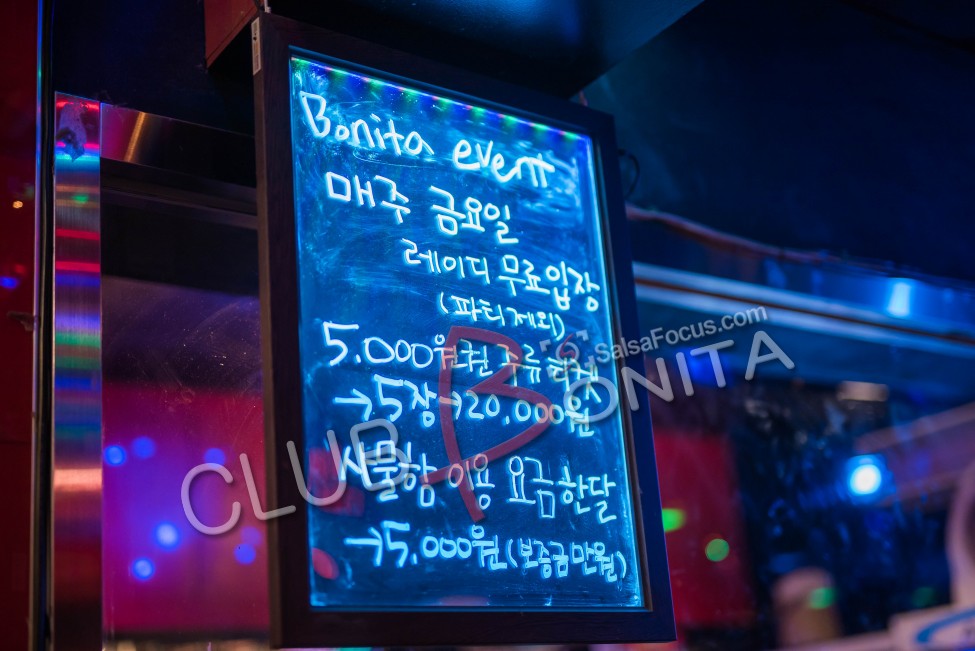 Bonita event
매주 금요일
레이디 무료입장
(파티제외)
5.000원권 주류
→5장→20,000원
사물함 이용 요금 한달
→5.000원(보증금만원)
SalsaFocus.com
CLUB BONITA